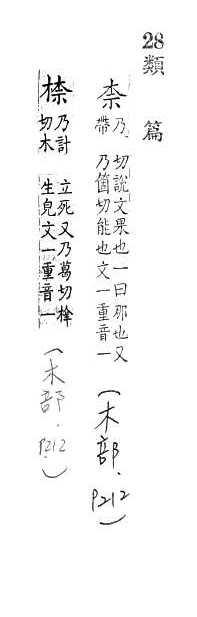 28類篇
柰乃帶切說文果也一曰那也又乃箇切能也文一重音一(木部.P212)
㮈乃計切木立死又乃葛切榟生皃文一重音一(木部.P212)